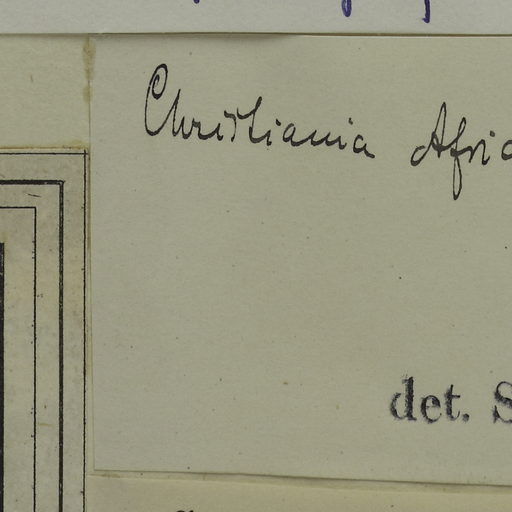 Christiania Afric
det. S